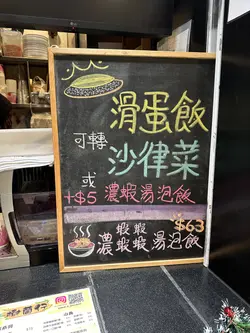 滑蛋飯
可轉
沙律菜
或
+$5 濃蝦湯泡飯
$63
蝦蝦
濃蝦蝦湯泡飯